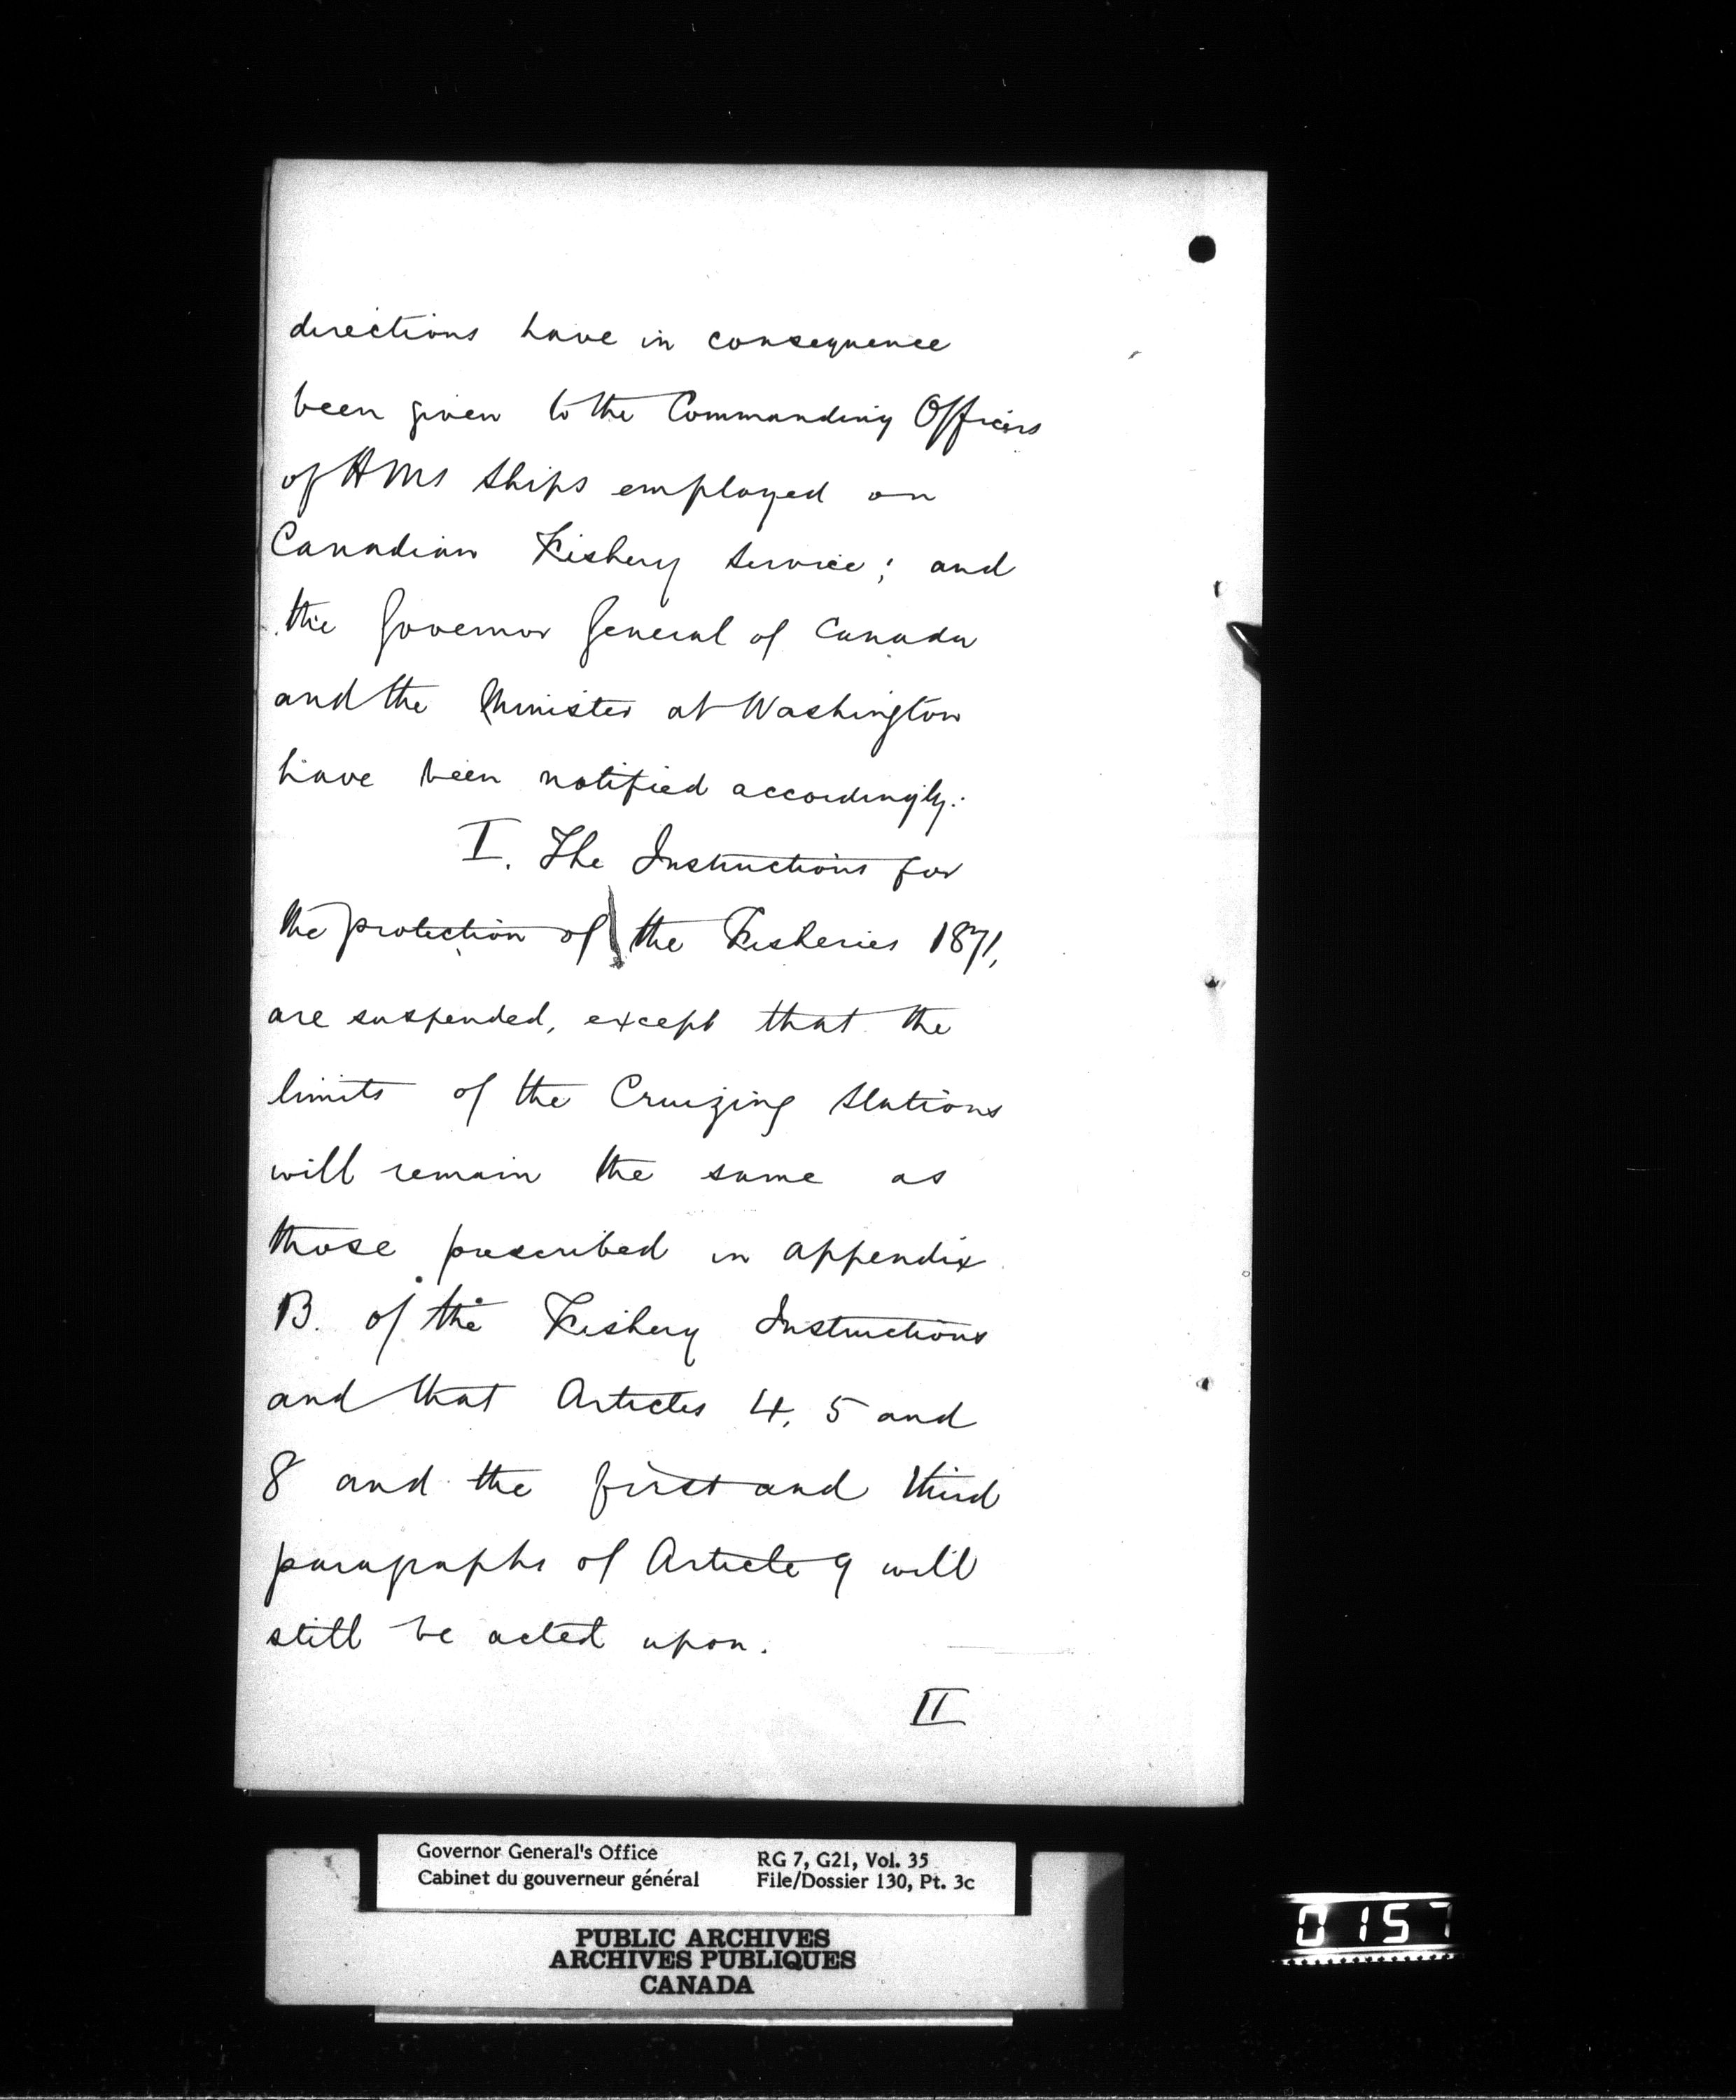 directions have in consequence
been given to the Commanding Officers
of HMS Ships employed on
Canadian Fishery Service; and
the Governor General of Canada
and the Minister at Washington
have been notified accordingly:
I. The Instructions for
the protection of the Fisheries 1871,
are suspended, except that the
limits of the Cruizing Stations
will remain the same as
those prescribed in appendix
B. of the Fishery Instructions
and that Articles 4, 5 and
8 and the first and third
paragraphs of Article 9 will
still be acted upon.
II
Governor General's Office
Cabinet du gouverneur général
RG 7, G21, Vol. 35
File/Dossier 130, Pt. 3c
PUBLIC ARCHIVES
ARCHIVES PUBLIQUES
CANADA
0157